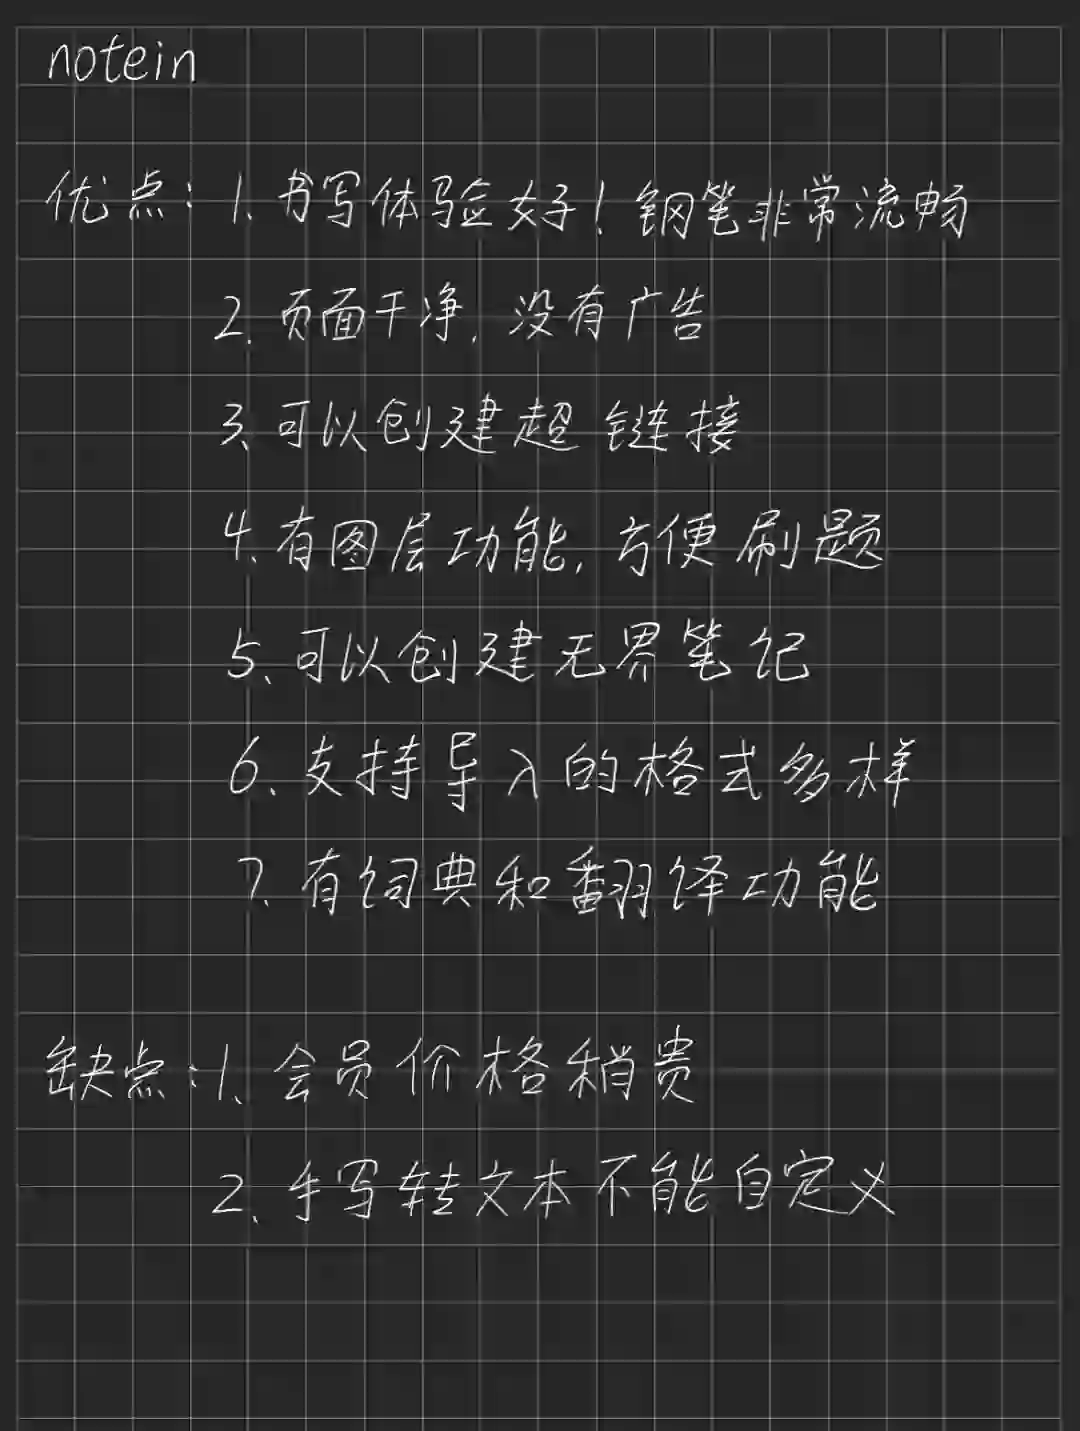 notein
优点：1、书写体验好！钢笔非常流畅
2、页面干净，没有广告
3、可以创建超链接
4、有图层功能，方便刷题
5、可以创建无界笔记
6、支持导入的格式多样
7、有词典和翻译功能
缺点：1、会员价格稍贵
2、手写转文本不能自定义